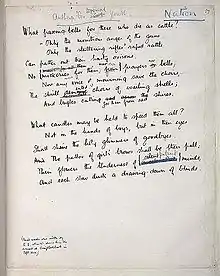 Nation
Anthem for Youth
What passing bells for these who die as cattle?
— Only the monstrous anger of the guns.
Only the stuttering rifles' rapid rattle
Can patter out their hasty orisons.
No mockeries for them; from prayers or bells,
Nor any voice of mourning save the choirs,
The shrill demented choirs of wailing shells;
And bugles calling shires.
for them from sad
What candles may be held to speed them all?
Not in the hands of boys, but in their eyes
Shall shine the holy glimmers of goodbyes.
And The pallor of girls' brows shall be their pall;
Their flowers the tenderness of minds,
And each slow dusk a drawing-down of blinds.